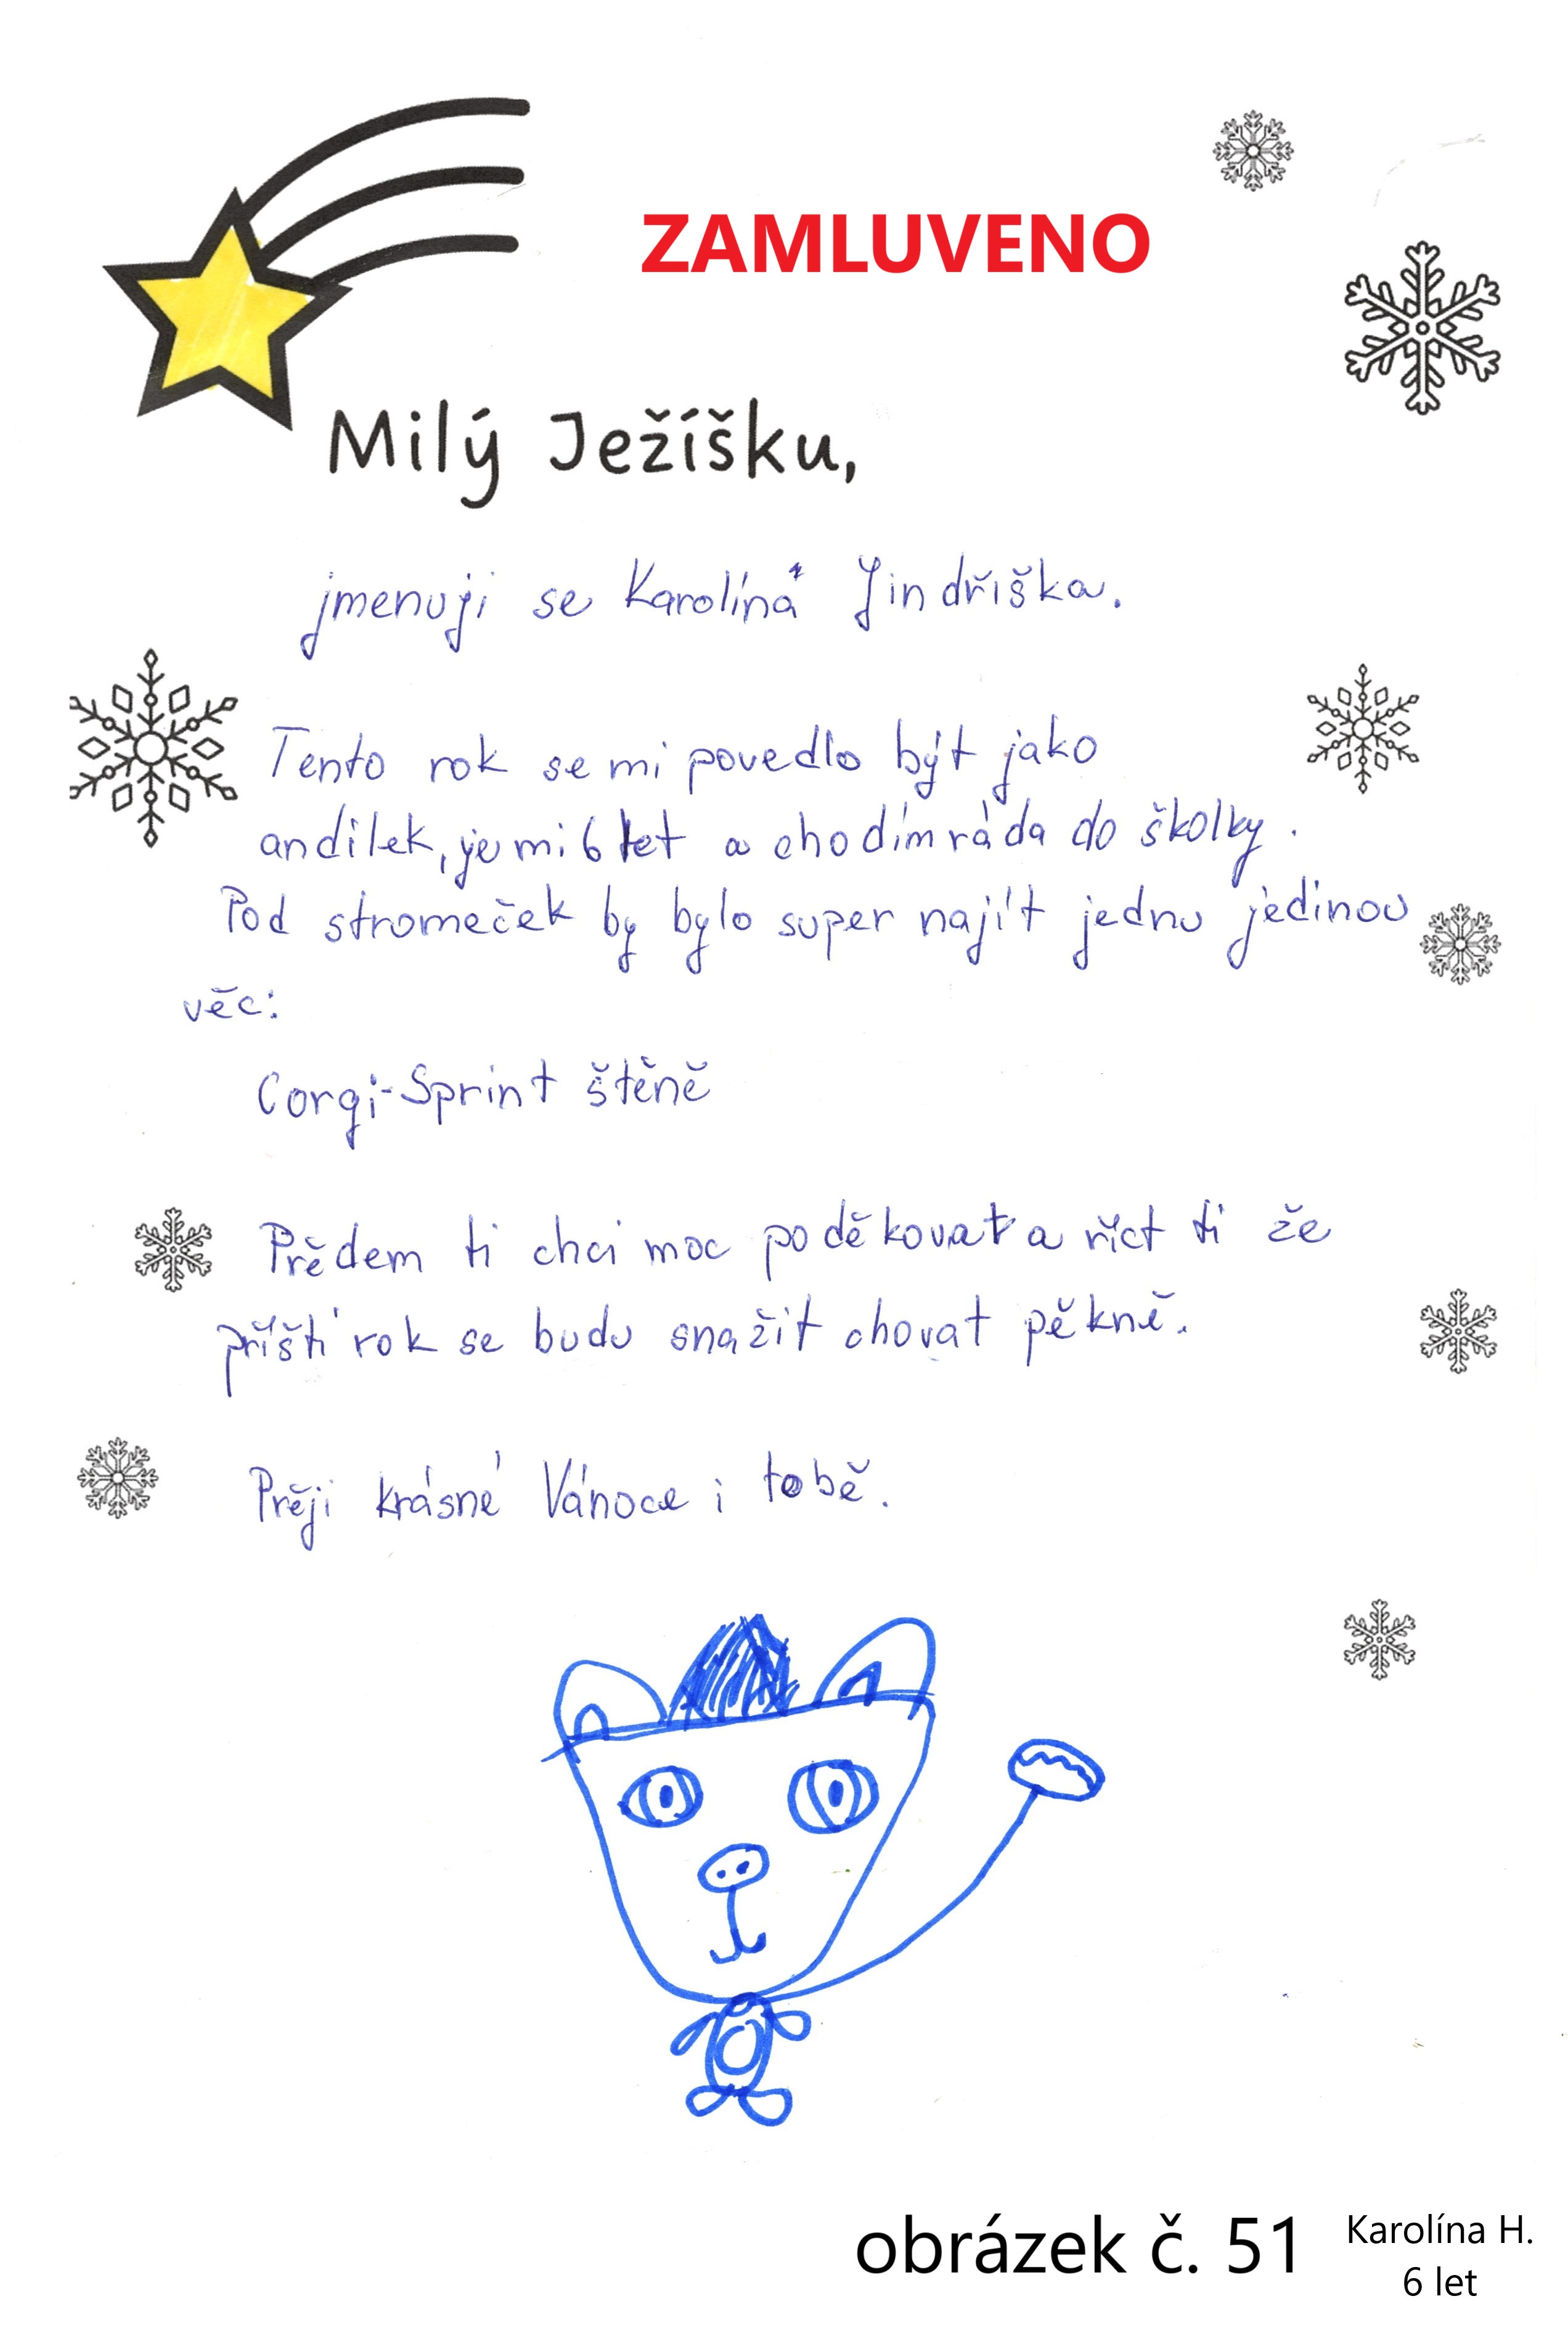 ZAMLUVENO
Milý Ježíšku,
jmenuji se Karolína Jindřiška.
Tento rok se mi povedlo být jako
andílek, je mi 6 let a chodím ráda do školky.
Pod stromeček by bylo super najít jednu jedinou
věc:
Corgi-Sprint štěně
Předem ti chci moc poděkovat a říct ti že
příští rok se budu snažit chovat pěkně.
Přěji krásné Vánoce i tobě.
obrázek č. 51
Karolína H.
6 let